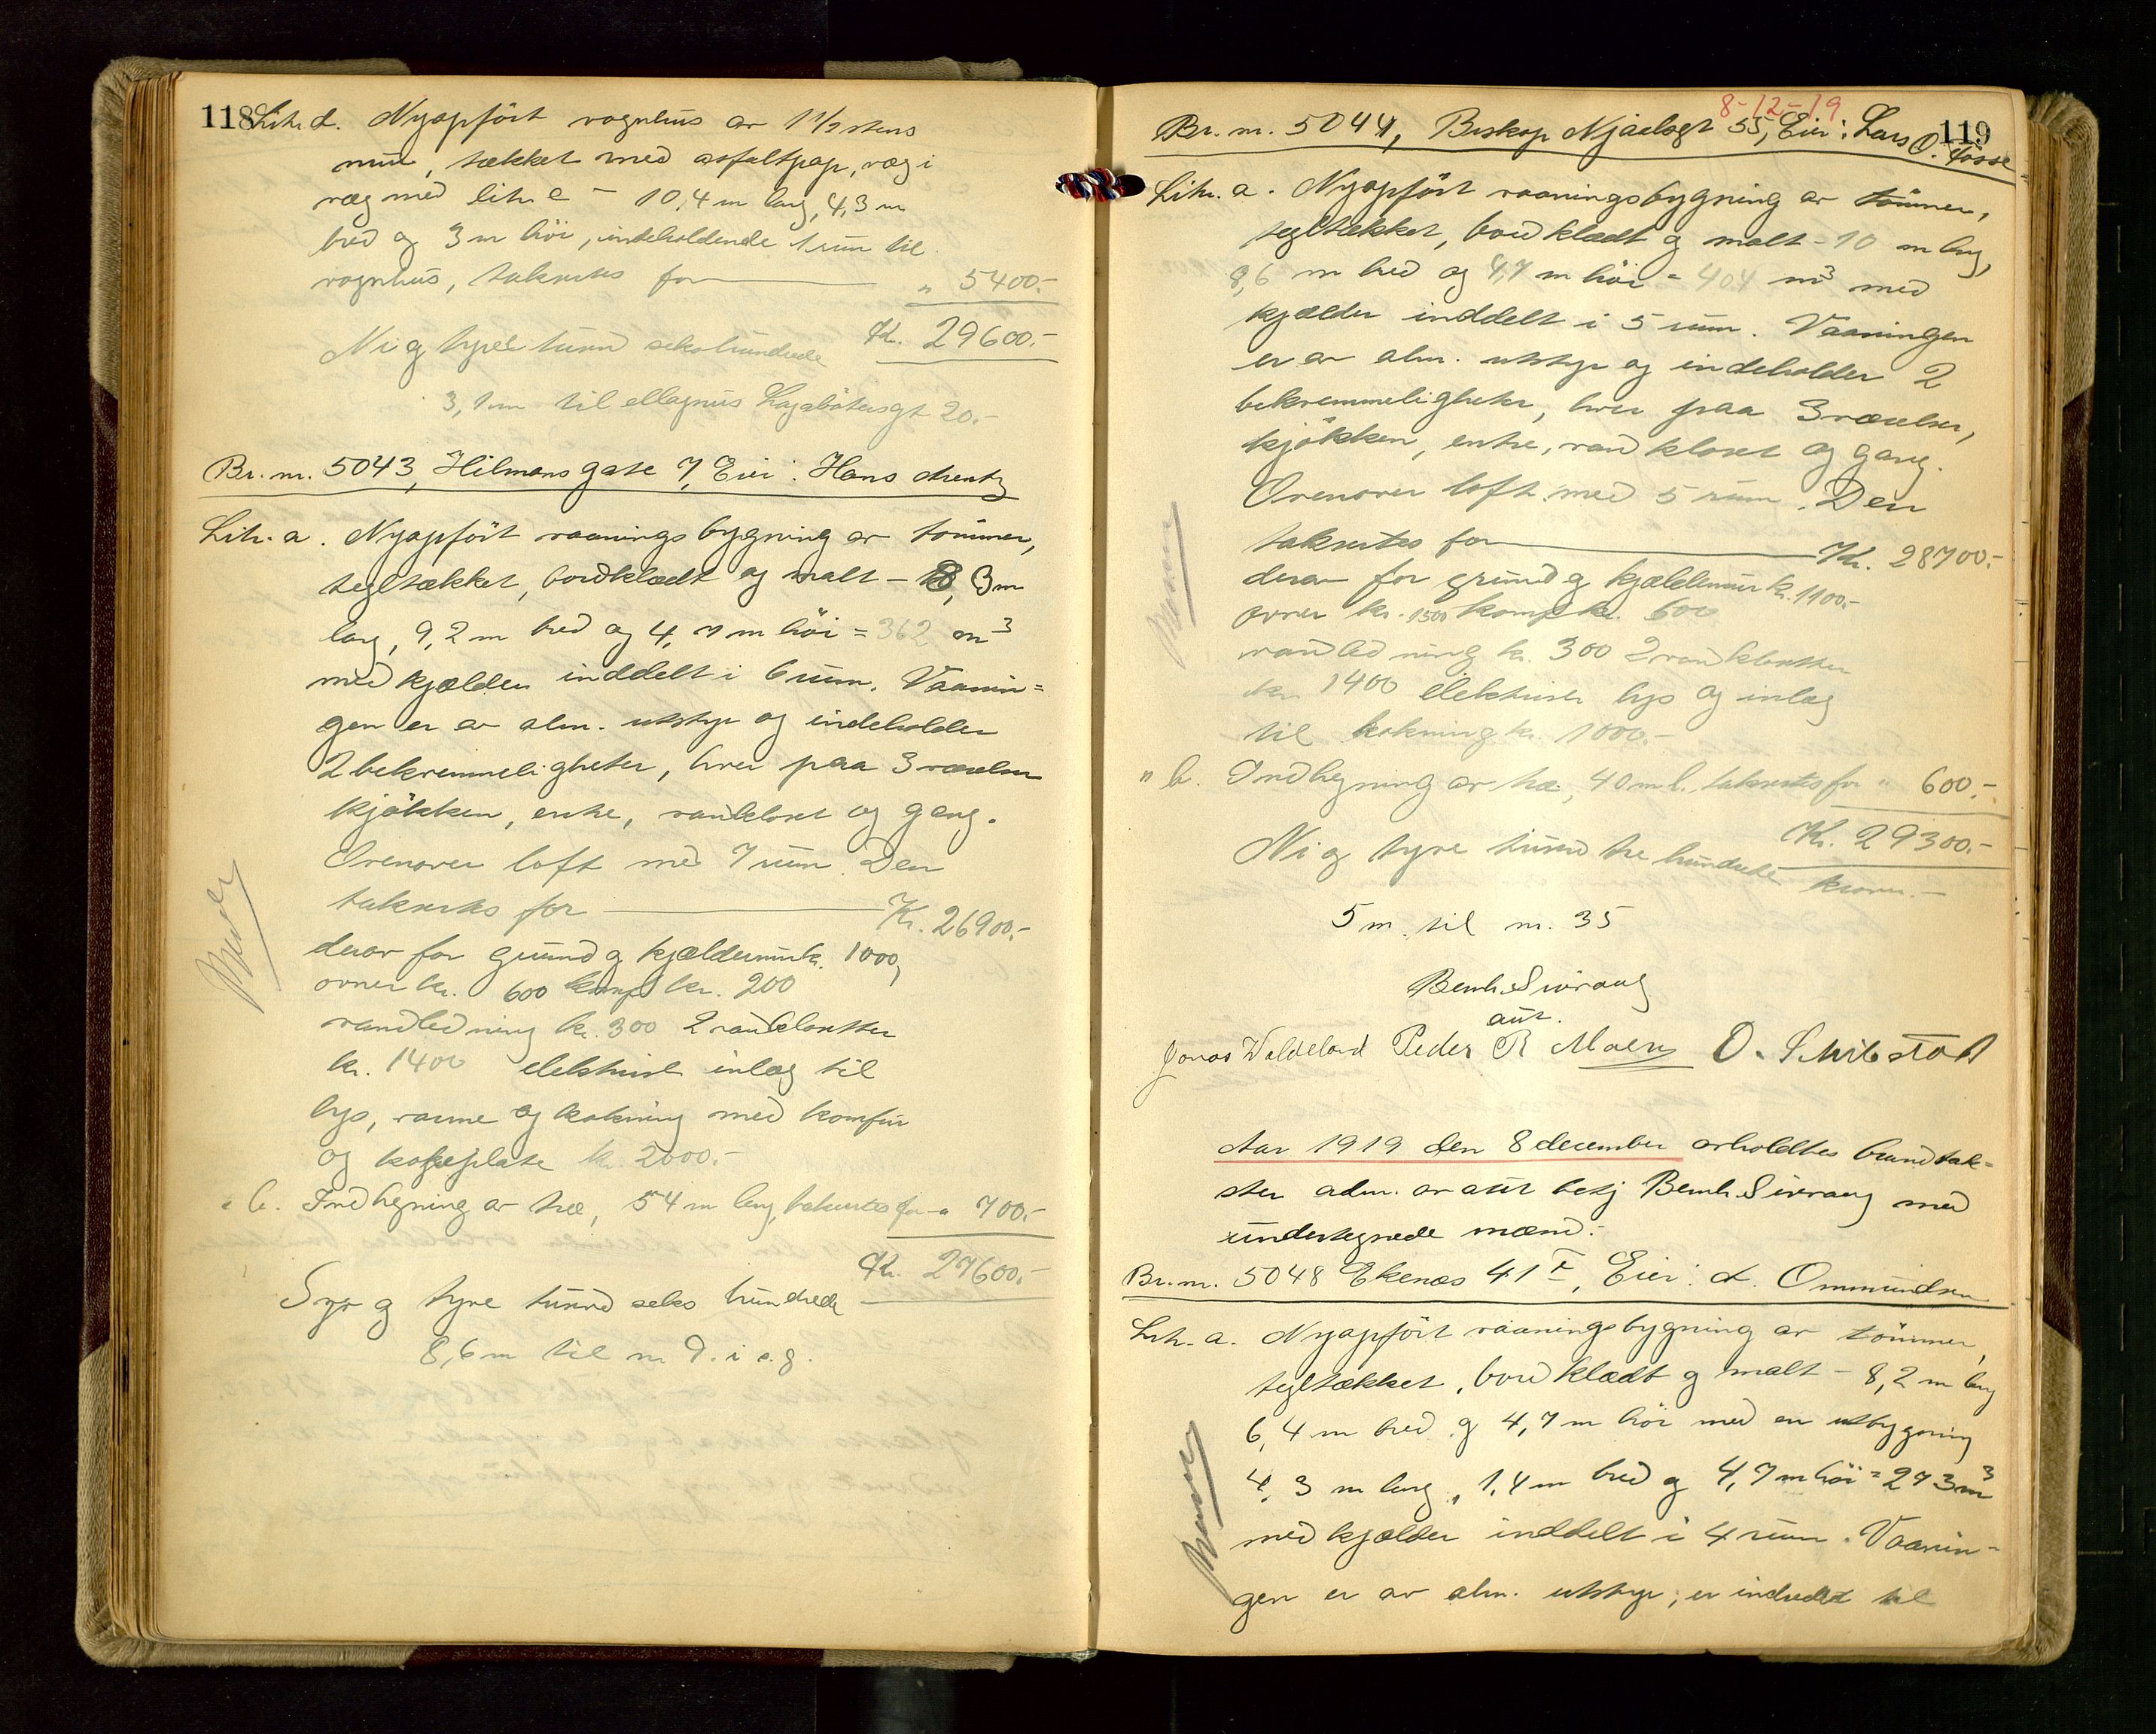 118
Litr. d. Nyopført vognhus av 1 1/2 stens
mur, tækket med asfaltpap, væg i
væg med litr. c - 10,4 m lang, 4,3 m
bred og 3 m høi, indeholdende 1 rum til
vognhus, takseres for „ 5400.-
Kr. 29600.-
Ni og tyve tusind sekshundrede
3,1 m til Magnus Lagabøtersgt 20.-
Br. nr. 5043, Hilmansgate 7, Eier: Hans
Litr. a. Nyopført vaaningsbygning av tømmer,
tegltækket, bordklædt og malt - 8,3 m
lang, 9,2 m bred og 4,7 m høi = 362 m3
med kjælder inddelt i 6 rum. Vaanin=
gen er av alm. utstyr og indeholder
2 bekvemmeligheter, hver paa 3 værelser
kjøkken, entre, vandkloset og gang.
Ovenover loft med 7 rum. Den
takseres for Kr. 26900.-
derav for grund og kjældermur kr. 1000,
ovner kr. 600 komf kr. 200
vandledning kr. 300 2 vandklosetter
kr. 1400 elektrisk inlæg til
lys, varme og kokning med komfur
og kokeplate kr. 2000.-
„ b. Indhegning av træ, 54 m lang, takseres for „ 700.-
Kr. 27600.-
Syv og tyve tusind seks hundrede
8,6 m til nr 9. i s. g.
8-12-19
119
Br. nr. 5044, Biskop Njaelsgt 55, Eier: Lars O. Fosse
Litr. a. Nyopført vaaningsbygning av tømmer,
tegltækket, bordklædt og malt - 10 m lang,
8,6 m bred og 4,7 m høi = 404 m3 med
kjælder inddelt i 5 rum. Vaaningen
er av alm. utstyr og indeholder 2
bekvemmeligheter, hver paa 3 værelser,
kjøkken, entre, vandkloset og gang.
Ovenover loft med 5 rum. Den
takseres for Kr. 28700.-
derav for grund og kjældermur kr. 1100.-
ovner kr. 1500 komf kr. 600
vandledning kr. 300 2 vandklosetter
kr. 1400 elektrisk lys og inlæg
til kokning kr. 1000.-
„ b. Indhegning av træ, 40 m l. takseres for „ 600.-
Kr. 29300.-
Ni og tyve tusind tre hundrede kroner.-
5 m. til nr. 35
Bernh. Sivraug
aut.
Jonas Waldeland Peder R Moen O. Schibstad
Aar 1919 den 8 december avholdtes brandtak=
ster adm. av aut betj Bernh. Sivraug med
undertegnede mænd:
Br. nr. 5048 Ekenæs 41 I, Eier: L. Ommundsen
Litr. a. Nyopført vaaningsbygning av tømmer,
tegltækket, bordklædt og malt - 8,2 m lang
6,4 m bred og 4,7 m høi med en utbygning
4,3 m lang, 1,4 m bred og 4,7 m høi = 273 m3
med kjælder inddelt i 4 rum. Vaanin=
gen er av alm. utstyr, er indredet til